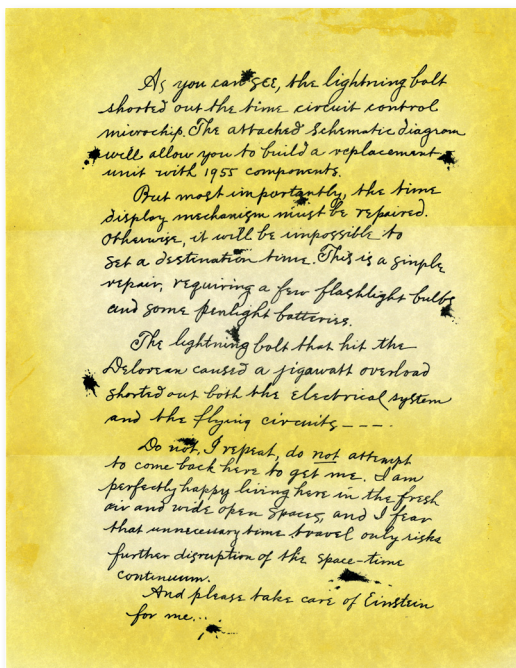 As you can see, the lightning bolt
shorted out the time circuit control
microchip. The attached schematic diagram
will allow you to build a replacement
unit with 1955 components.
But most importantly, the time
display mechanism must be repaired.
Otherwise, it will be impossible to
set a destination time. This is a simple
repair, requiring a few flashlight bulbs
and some penlight batteries.
The lightning bolt that hit the
Delorean caused a jigawatt overload
shorted out both the electrical system
and the flying circuits ---.
Do not, I repeat, do not attempt
to come back here to get me. I am
perfectly happy living here in the fresh
air and wide open spaces, and I fear
that unnecessary time travel only risks
further disruption of the space-time
continuum.
And please take care of Einstein
for me...